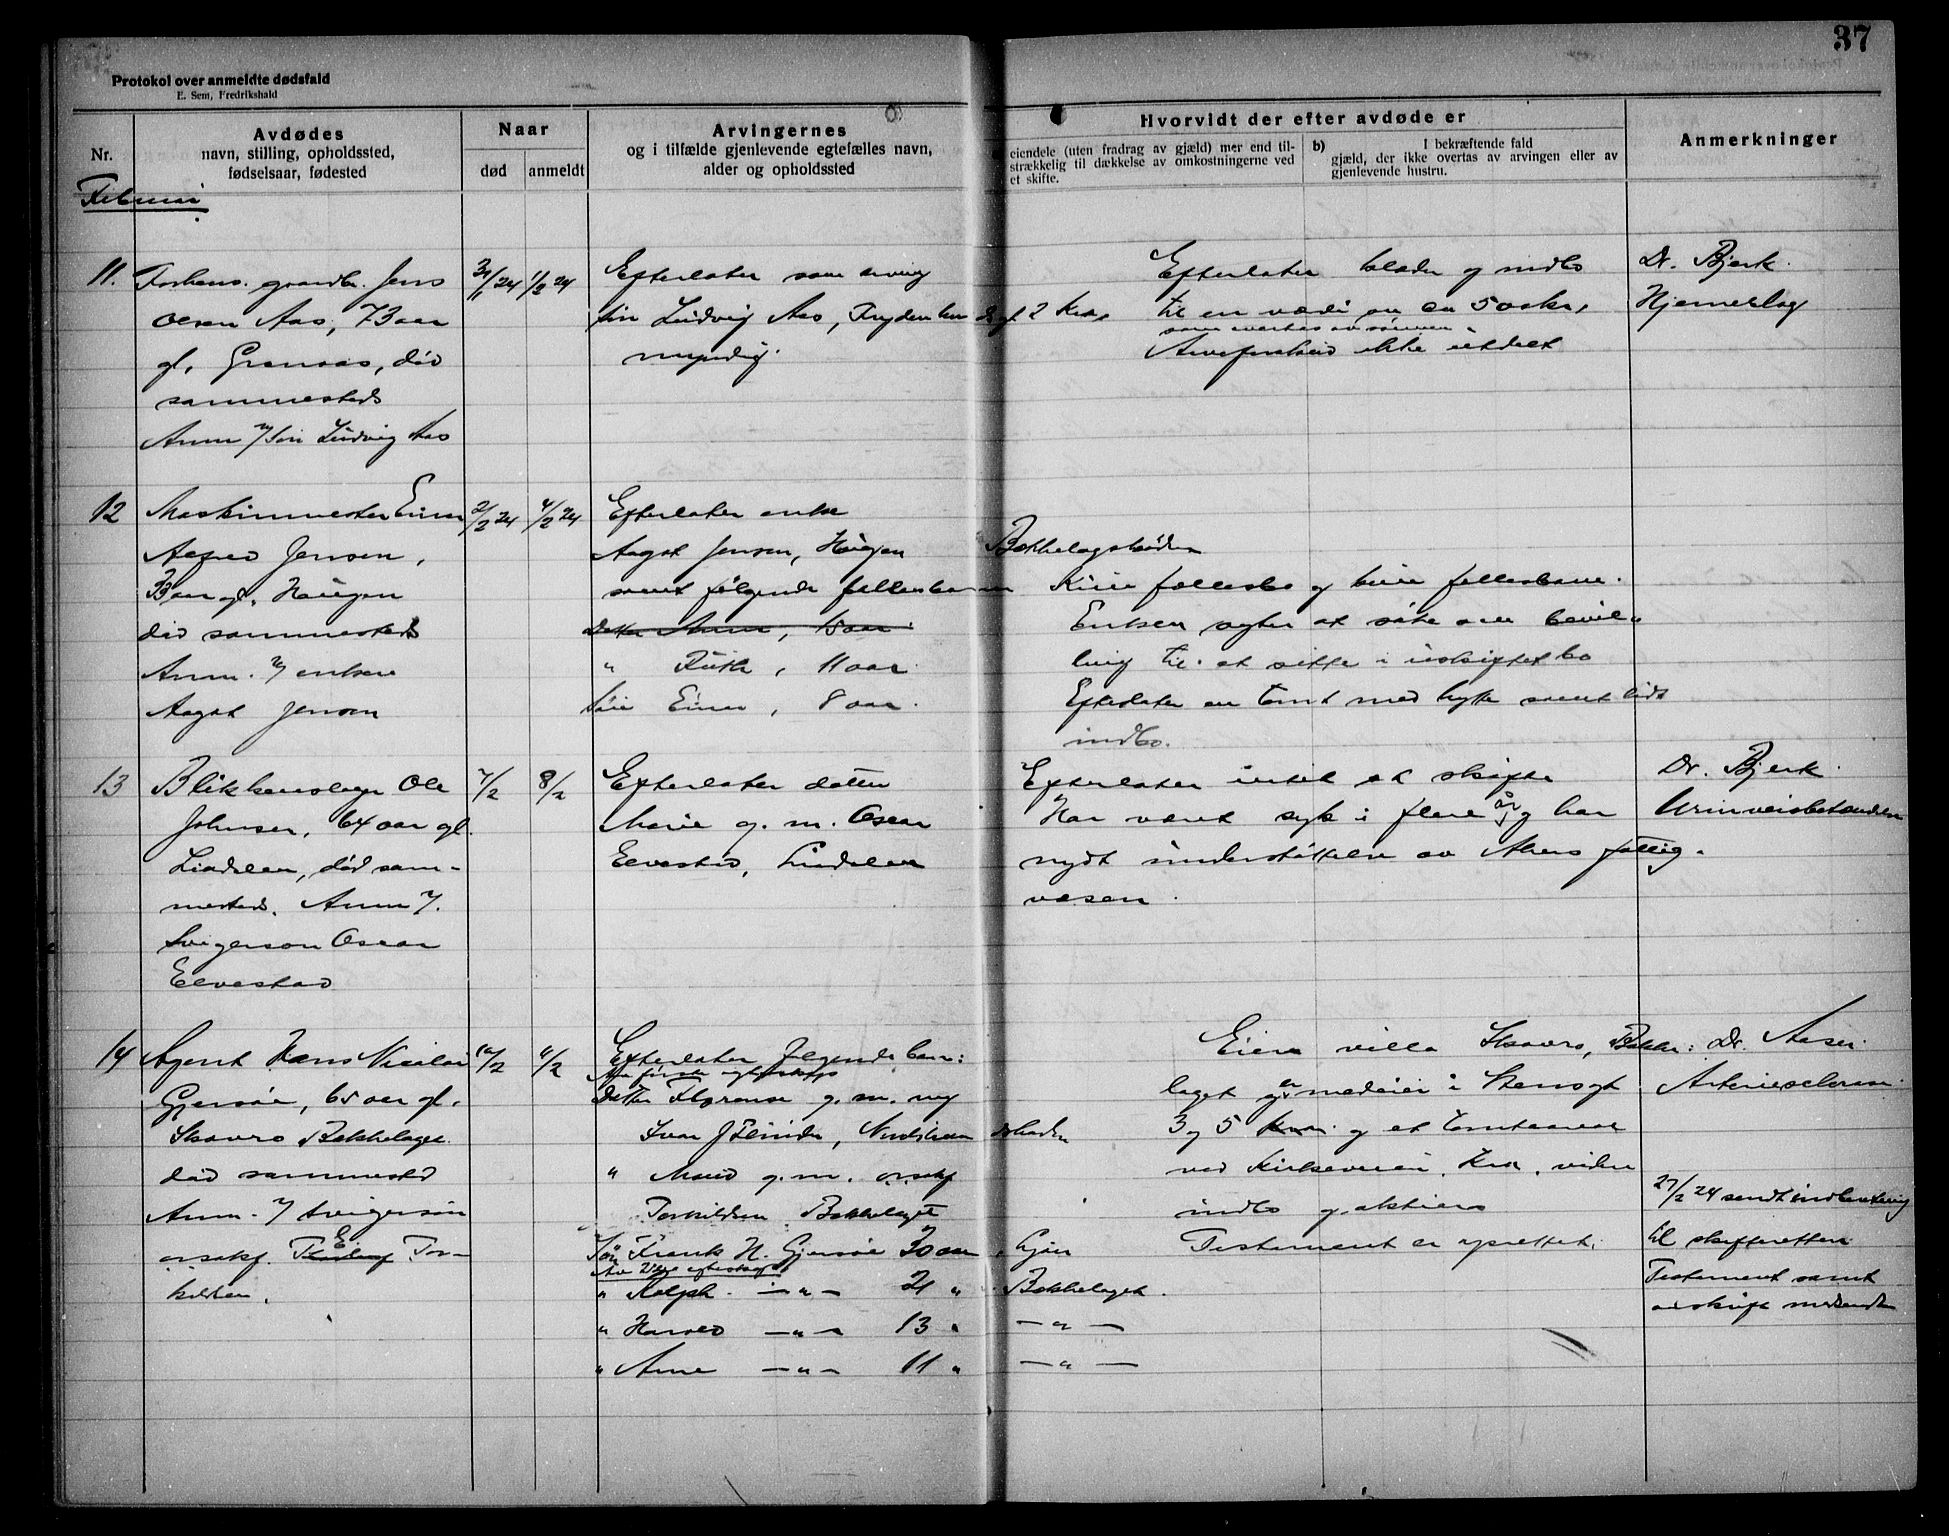 37
Protokol over anmeldte dødsfald
E. Sem, Fredrikshald
Nr.
Avdødes
navn, stilling, opholdssted,
fødselsaar, fødested
Naar
død
anmeldt
Arvingernes
og i tilfælde gjenlevende egtefælles navn,
alder og opholdssted
Hvorvidt der efter avdøde er
eiendele (uten fradrag av gjæld) mer end til-
strækkelig til dækkelse av omkostningerne ved
et skifte.
b)
I bekræftende fald
gjæld, der ikke overtas av arvingen eller av
gjenlevende hustru.
Anmerkninger
Februar
11.
gaardbr. Jens
Olsen Aas, 73 aar
gl, Grønaas, død
sammesteds
Anm v/ søn Ludvig Aas
31/1 24
1/2 24
Efterlater som arving
søn Ludvig Aas,
myndig.
Efterlater klæder og indbo
til en værdi av ca 500 kr,
som overtas av sønnen.
ikke utdelt
Dr. Bjerk.
Hjerneslag
12
Maskinmester Einar
Alfred Jensen,
Haugen
død sammesteds
Anm. v/ enken
Aagot Jensen
2/2 24
4/2 24
Efterlater enke
Aagot Jensen, Haugen
Bækkelagshøiden
samt følgende fællesbarn
Datter Anna, 15 aar
" Ruth, 11 aar.
Søn Einar, 8 aar.
Kun fællesbo og kun fællesbarn.
Enken agter at søke om bevil-
ling til at sitte i uskiftet bo
Efterlater en tomt med hytte samt lidt
indbo.
13
Blikkenslager Ole
Johnsen, 64 aar gl.
Lindalen, død sam-
mesteds. Anm v/.
Svigersøn Oscar
Elvestad
7/2
8/2
Efterlater datter
Marie g. m. Oscar
Elvestad, Lindalen
Efterlater intet at skifte
Har været syk i flere år og har
nydt understøttelse av Akers fattig-
væsen.
Dr. Bjerk.
Urinveisbetændelse
14
Agent Hans Nicolai
Gjersøe, 65 aar gl.
Skovro Bækkelaget.
død sammested
Anm. v/ svigersøn
orsakf. Tor-
kildsen.
10/2
11/2
Efterlater følgende barn:
Av første egteskap
Datter Florence g. m. ing
Ivar Nordstrandshøiden
" Maud g. m. orsakf
Torkildsen, Bækkelaget
Søn Frank H. Gjersøe 30 aar,
Av 2det egteskap
" Ralph — " — 21 " Bækkelaget.
" Harald — " — 13 " — " —
" Arne — " — 11 " — " —
Eier villa Skovro, Bække-
laget er medeier i Stensgt
3 og 5 og et tomteareal
ved Kirkeveien, Kra, videre
indbo og aktier
Testament er oprettet.
Dr. Aaser.
Arteriesclerose.
27/2 24 sendt indberetning
til skifteretten
Testament samt
avskrift medsendt